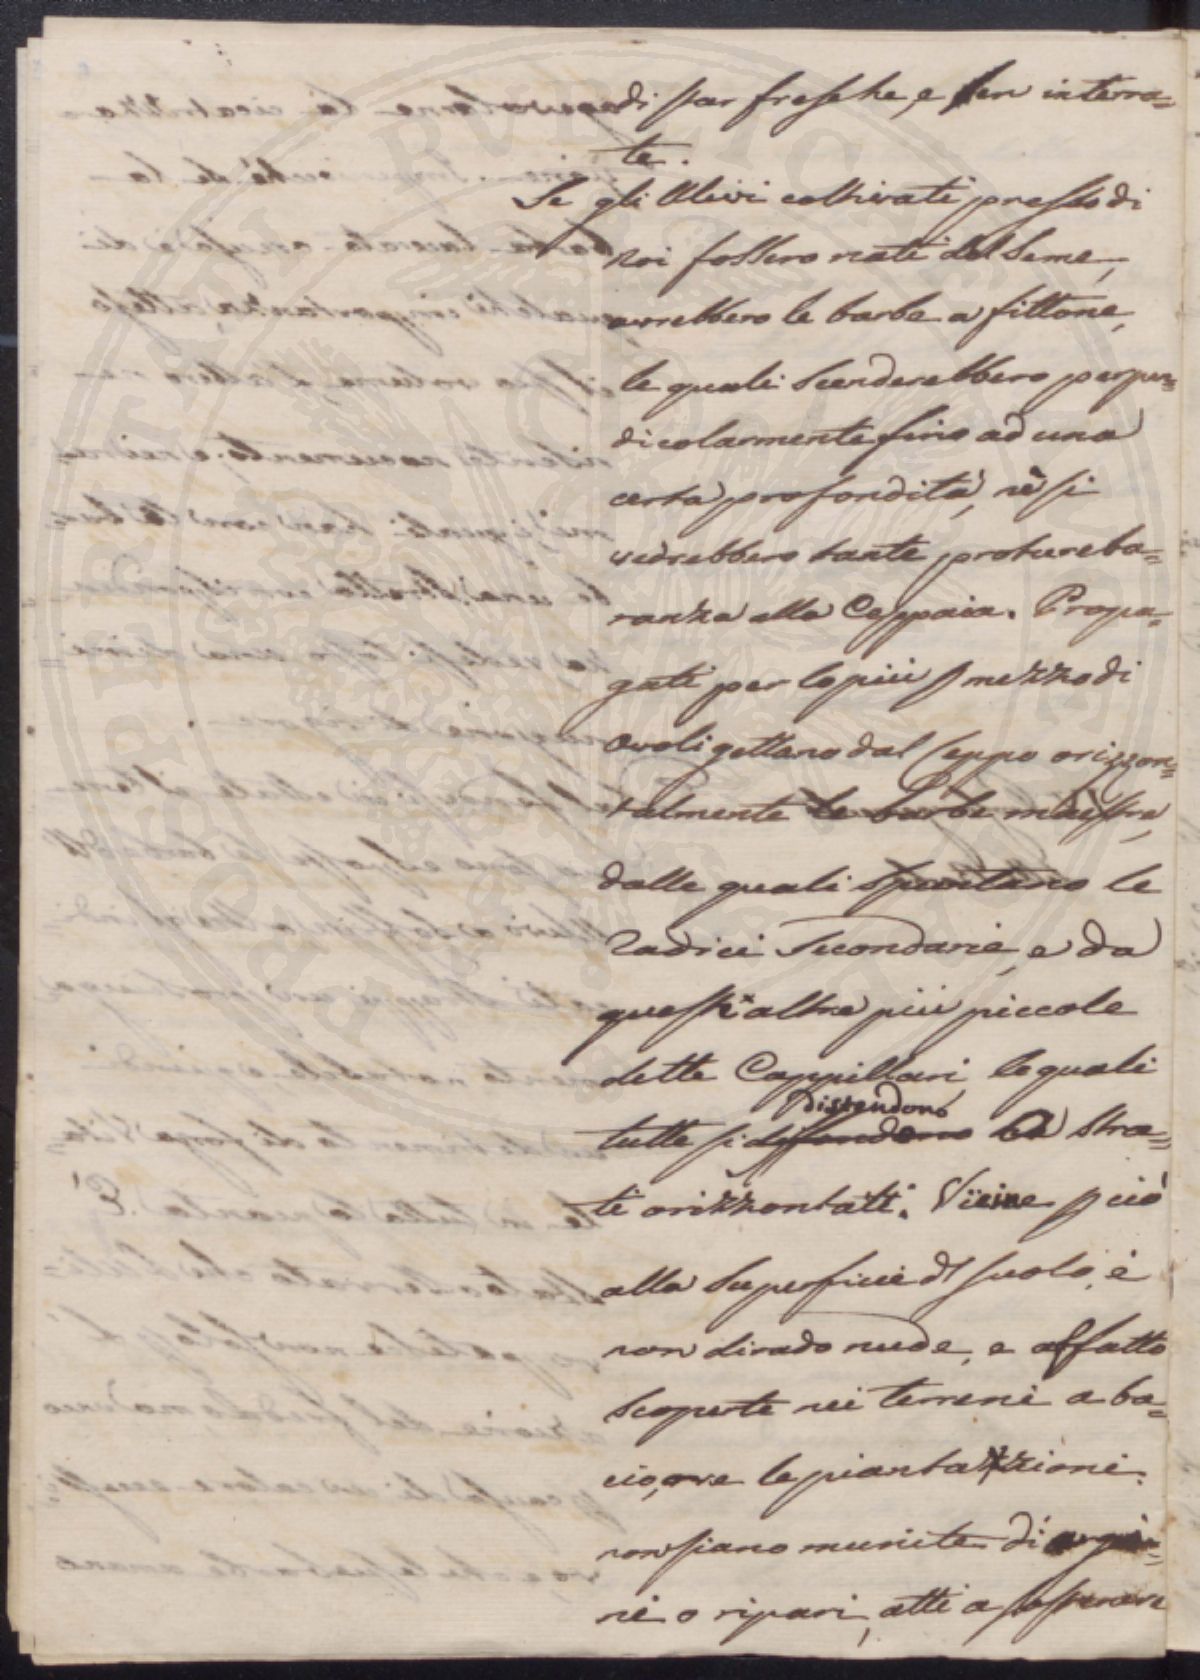 di star fresche, e ben interra=
te.
Se gli Ulivi coltivati presso di
noi fossero nati dal Seme,
avrebbero le barbe a fittone,
le quali Scenderebbero perpen=
dicolarmente fino ad una
certa profondità, nè si
vedrebbero tante protubera=
ranza alla Ceppaia. Propa=
gati per lo più p mezzo di
Ovoli gettano dal Ceppo orizzon=
talmente le barbe maestre,
dalle quali spuntano le
Radici Secondarie, e da
queste altre più piccole
dette Cappillari, le quali
distendono
tutte si diffondono a stra=
ti orizzontali. Vicine p ciò
alla Superficie dl suolo, è
non di rado nude, e affatto
Scoperte nei terreni a ba=
cio, ove le piantazioni
non siano munite di argi=
ni o ripari, atti a
PROPRIETÀ PUBLICA